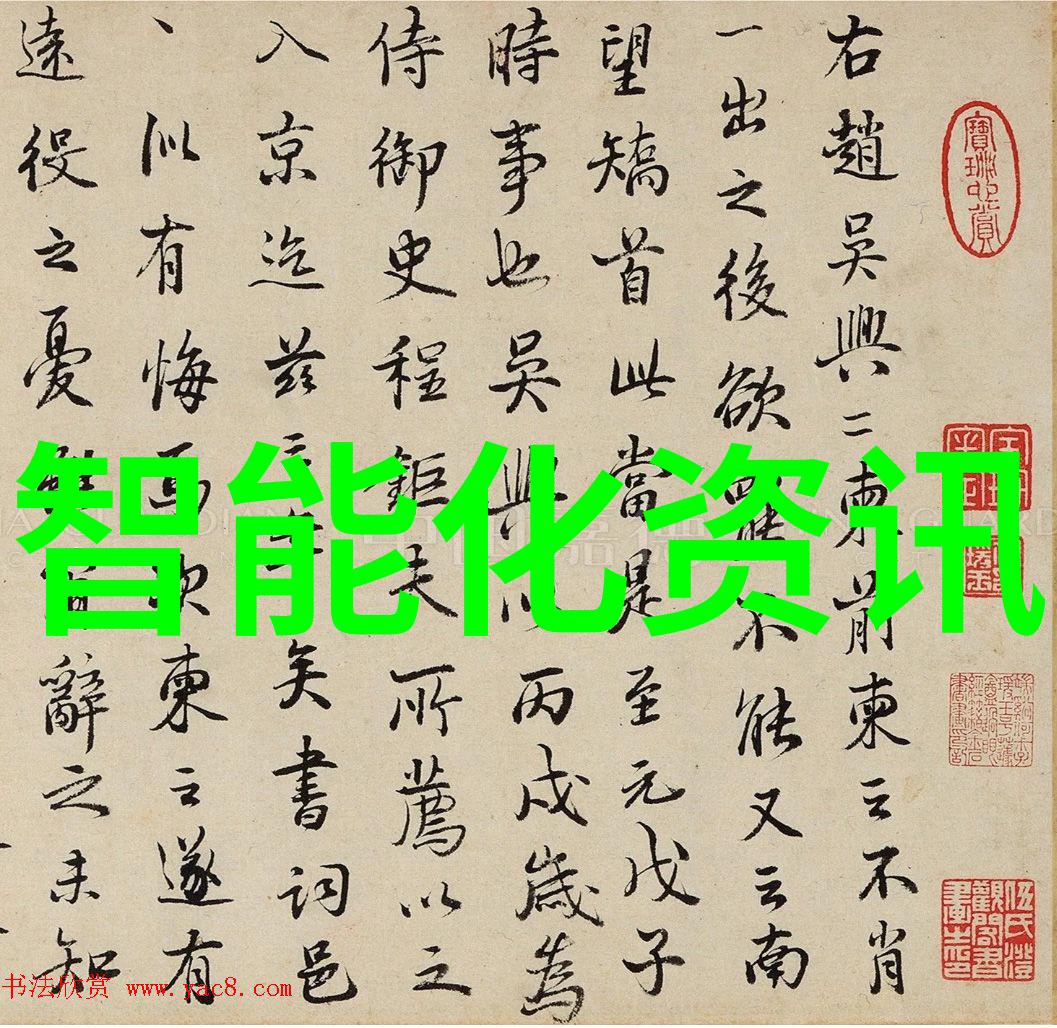 右趙吳興二柬前柬云不肖
一出之後欲罷不能又云南
望矯首此當是至元戊子
時事也吳興以丙戌歲為
侍御史程鉅夫所薦以之
入京迄茲三年矣書詞邑
丶似有悔焉次柬云遂有
遠役之憂辭之未知
智能化资讯
书法欣赏 www.yac8.com